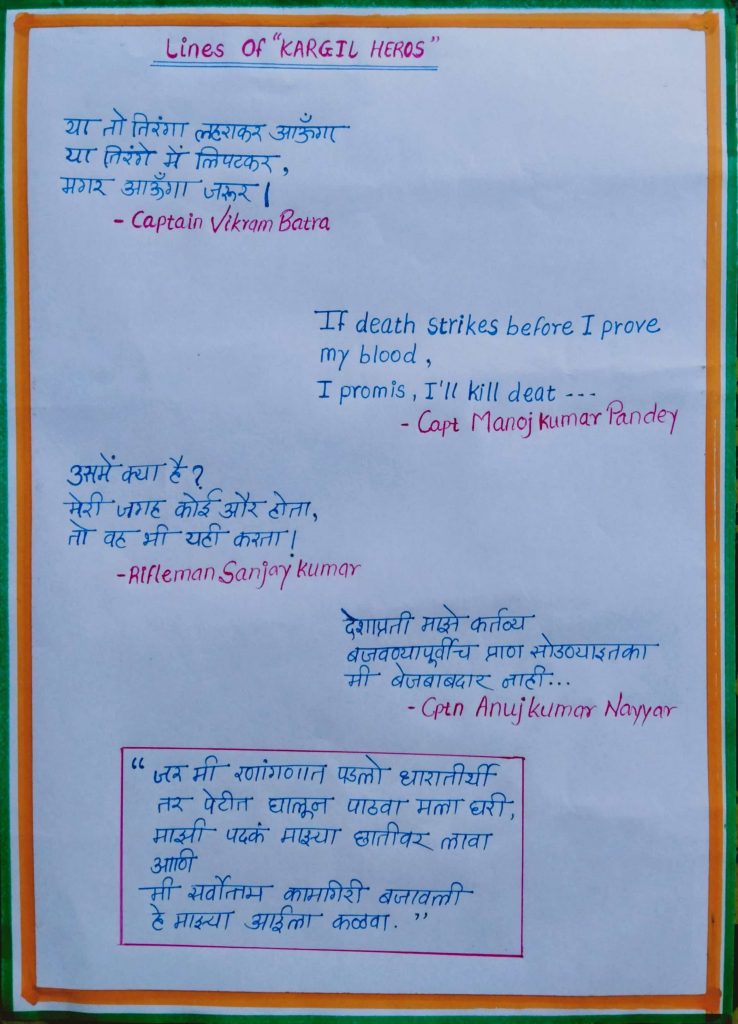 Lines Of "KARGIL HEROS"
या तो तिरंगा लहराकर आऊँगा
या तिरंगे में लिपटकर,
मगर आऊँगा जरूर।
- Captain Vikram Batra
If death strikes before I prove
my blood,
I promis, I'll kill deat ---
- Capt Manoj Kumar Pandey
उसमें क्या है?
मेरी जगह कोई और होता,
तो वह भी यही करता।
- Rifleman Sanjay Kumar
देशाप्रती माझे कर्तव्य
बजवण्यापूर्वीच प्राण सोडण्याइतका
मी बेजबाबदार नाही...
- Cptn Anuj Kumar Nayyar
“ जर मी रणांगणात पडलो धारातीर्थी
तर पेटीत घालून पाठवा मला घरी,
माझी पदकं माझ्या छातीवर लावा
आणि
मी सर्वोत्तम कामगिरी बजावली
हे माझ्या आईला कळवा. ”